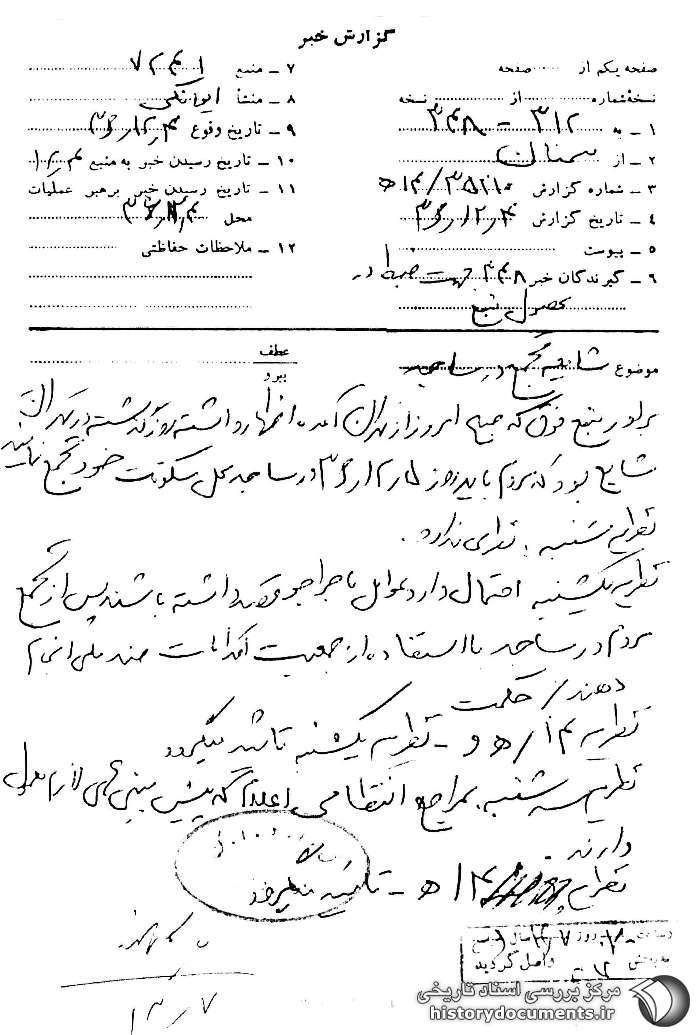 گزارش خبر
صفحه یکم از ........ صفحه
نسخهٔ شماره ........ از ........ نسخه
۱ - به ۳۱۲ - ۳۴۸
۲ - از سمنان
۳ - شماره گزارش
۴ - تاریخ گزارش ۳۶/۱۲/۴
۵ - پیوست
۶ - گیرندگان خبر ۳۴۸ جهت ضبط در
محصول منبع
۷ - منبع
۸ - منشأ ایوانکی
۹ - تاریخ وقوع
۱۰ - تاریخ رسیدن خبر به منبع
۱۱ - تاریخ رسیدن خبر برهبر عملیات
محل
۱۲ - ملاحظات حفاظتی
موضوع شایعه تجمع در مساجد
عطف
پیرو
برادر منبع فوق که صبح امروز از تهران آمده اظهار داشته روز گذشته در تهران
شایع بود که مردم باید روز در مساجد محل سکونت خود تجمع نمایند
نظریه شنبه . نظری ندارد.
نظریه یکشنبه احتمال دارد عوامل ماجراجو قصد داشته باشند پس از تجمع
مردم در مساجد با استفاده از جمعیت اقدامات ضد ملی انجام
دهند / حکمت
نظریه - نظریه یکشنبه تائید میگردد
نظریه سه شنبه. بمراجع انتظامی اعلام که پیش بینی های لازم معمول
دارند.
نظریه
۱۲/۷
ساعت روز سال
به بخش واصل گردید
مرکز بررسی اسناد تاریخی
historydocuments.ir